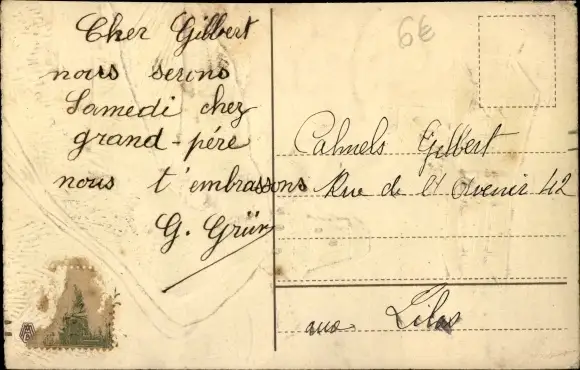 Cher Gilbert
nous serons
Samedi chez
grand-père
nous t'embrassons
G. Grün
6€
Calmels Gilbert
Rue de l'Avenir 42
aux Lilas